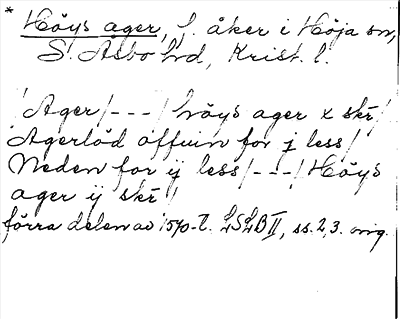 * Höys ager, f. åker i Höja sn,
S. Åsbo hd, Krist. l.
/Ager/---/höys ager x skr/
Agerlöd offuin for j less/
Neden for ij less/---/Höys
ager ij skr/
förra delen av 1570-t. LSLB II, ss. 2, 3. orig.